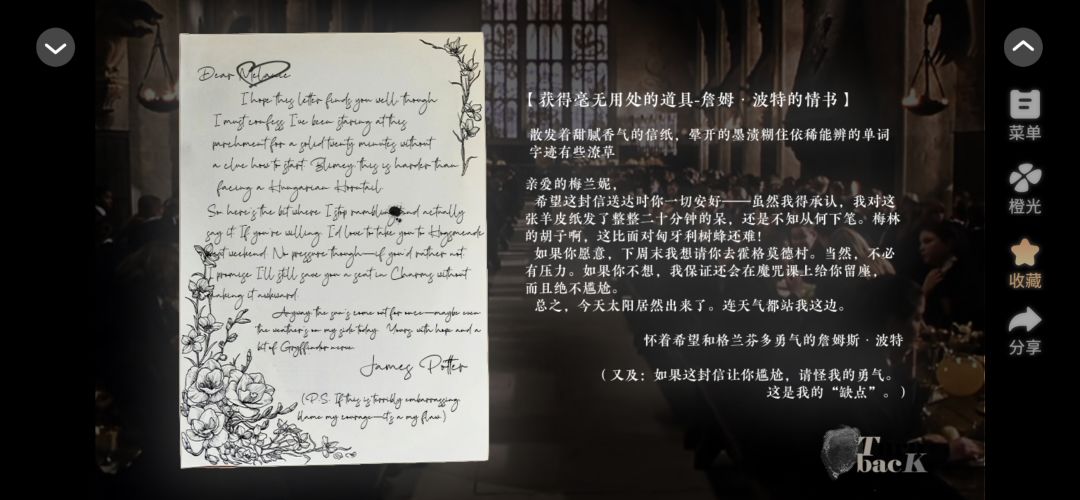 Dear Melanie
I hope this letter finds you well though
I must confess I've been staring at this
parchment for a solid twenty minutes without
a clue how to start. Blimey this is harder than
facing a Hungarian Horntail.
So here's the bit where I stop rambling and actually
say it. If you're willing I'd love to take you to Hogsmeade
next weekend. No pressure though—if you'd rather not
I promise I'll still save you a seat in Charms without
making it awkward.
Anyway the sun's come out for once—maybe even
the weather's on my side today. Yours with hope and a
bit of Gryffindor nerve.
James Potter
(P.S. If this is terribly embarrassing
blame my courage—it's a my flaw.)
【获得毫无用处的道具-詹姆·波特的情书】
散发着甜腻香气的信纸，晕开的墨渍糊住依稀能辨的单词
字迹有些潦草
亲爱的梅兰妮，
希望这封信送达时你一切安好——虽然我得承认，我对这
张羊皮纸发了整整二十分钟的呆，还是不知从何下笔。梅林
的胡子啊，这比面对匈牙利树蜂还难！
如果你愿意，下周末我想请你去霍格莫德村。当然，不必
有压力。如果你不想，我保证还会在魔咒课上给你留座，
而且绝不尴尬。
总之，今天太阳居然出来了。连天气都站我这边。
怀着希望和格兰芬多勇气的詹姆斯·波特
（又及：如果这封信让你尴尬，请怪我的勇气。
这是我的“缺点”。）
菜单
橙光
收藏
分享
bacK